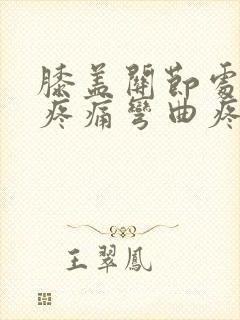 膝盖關節處
疼痛彎曲疼
王翠鳳